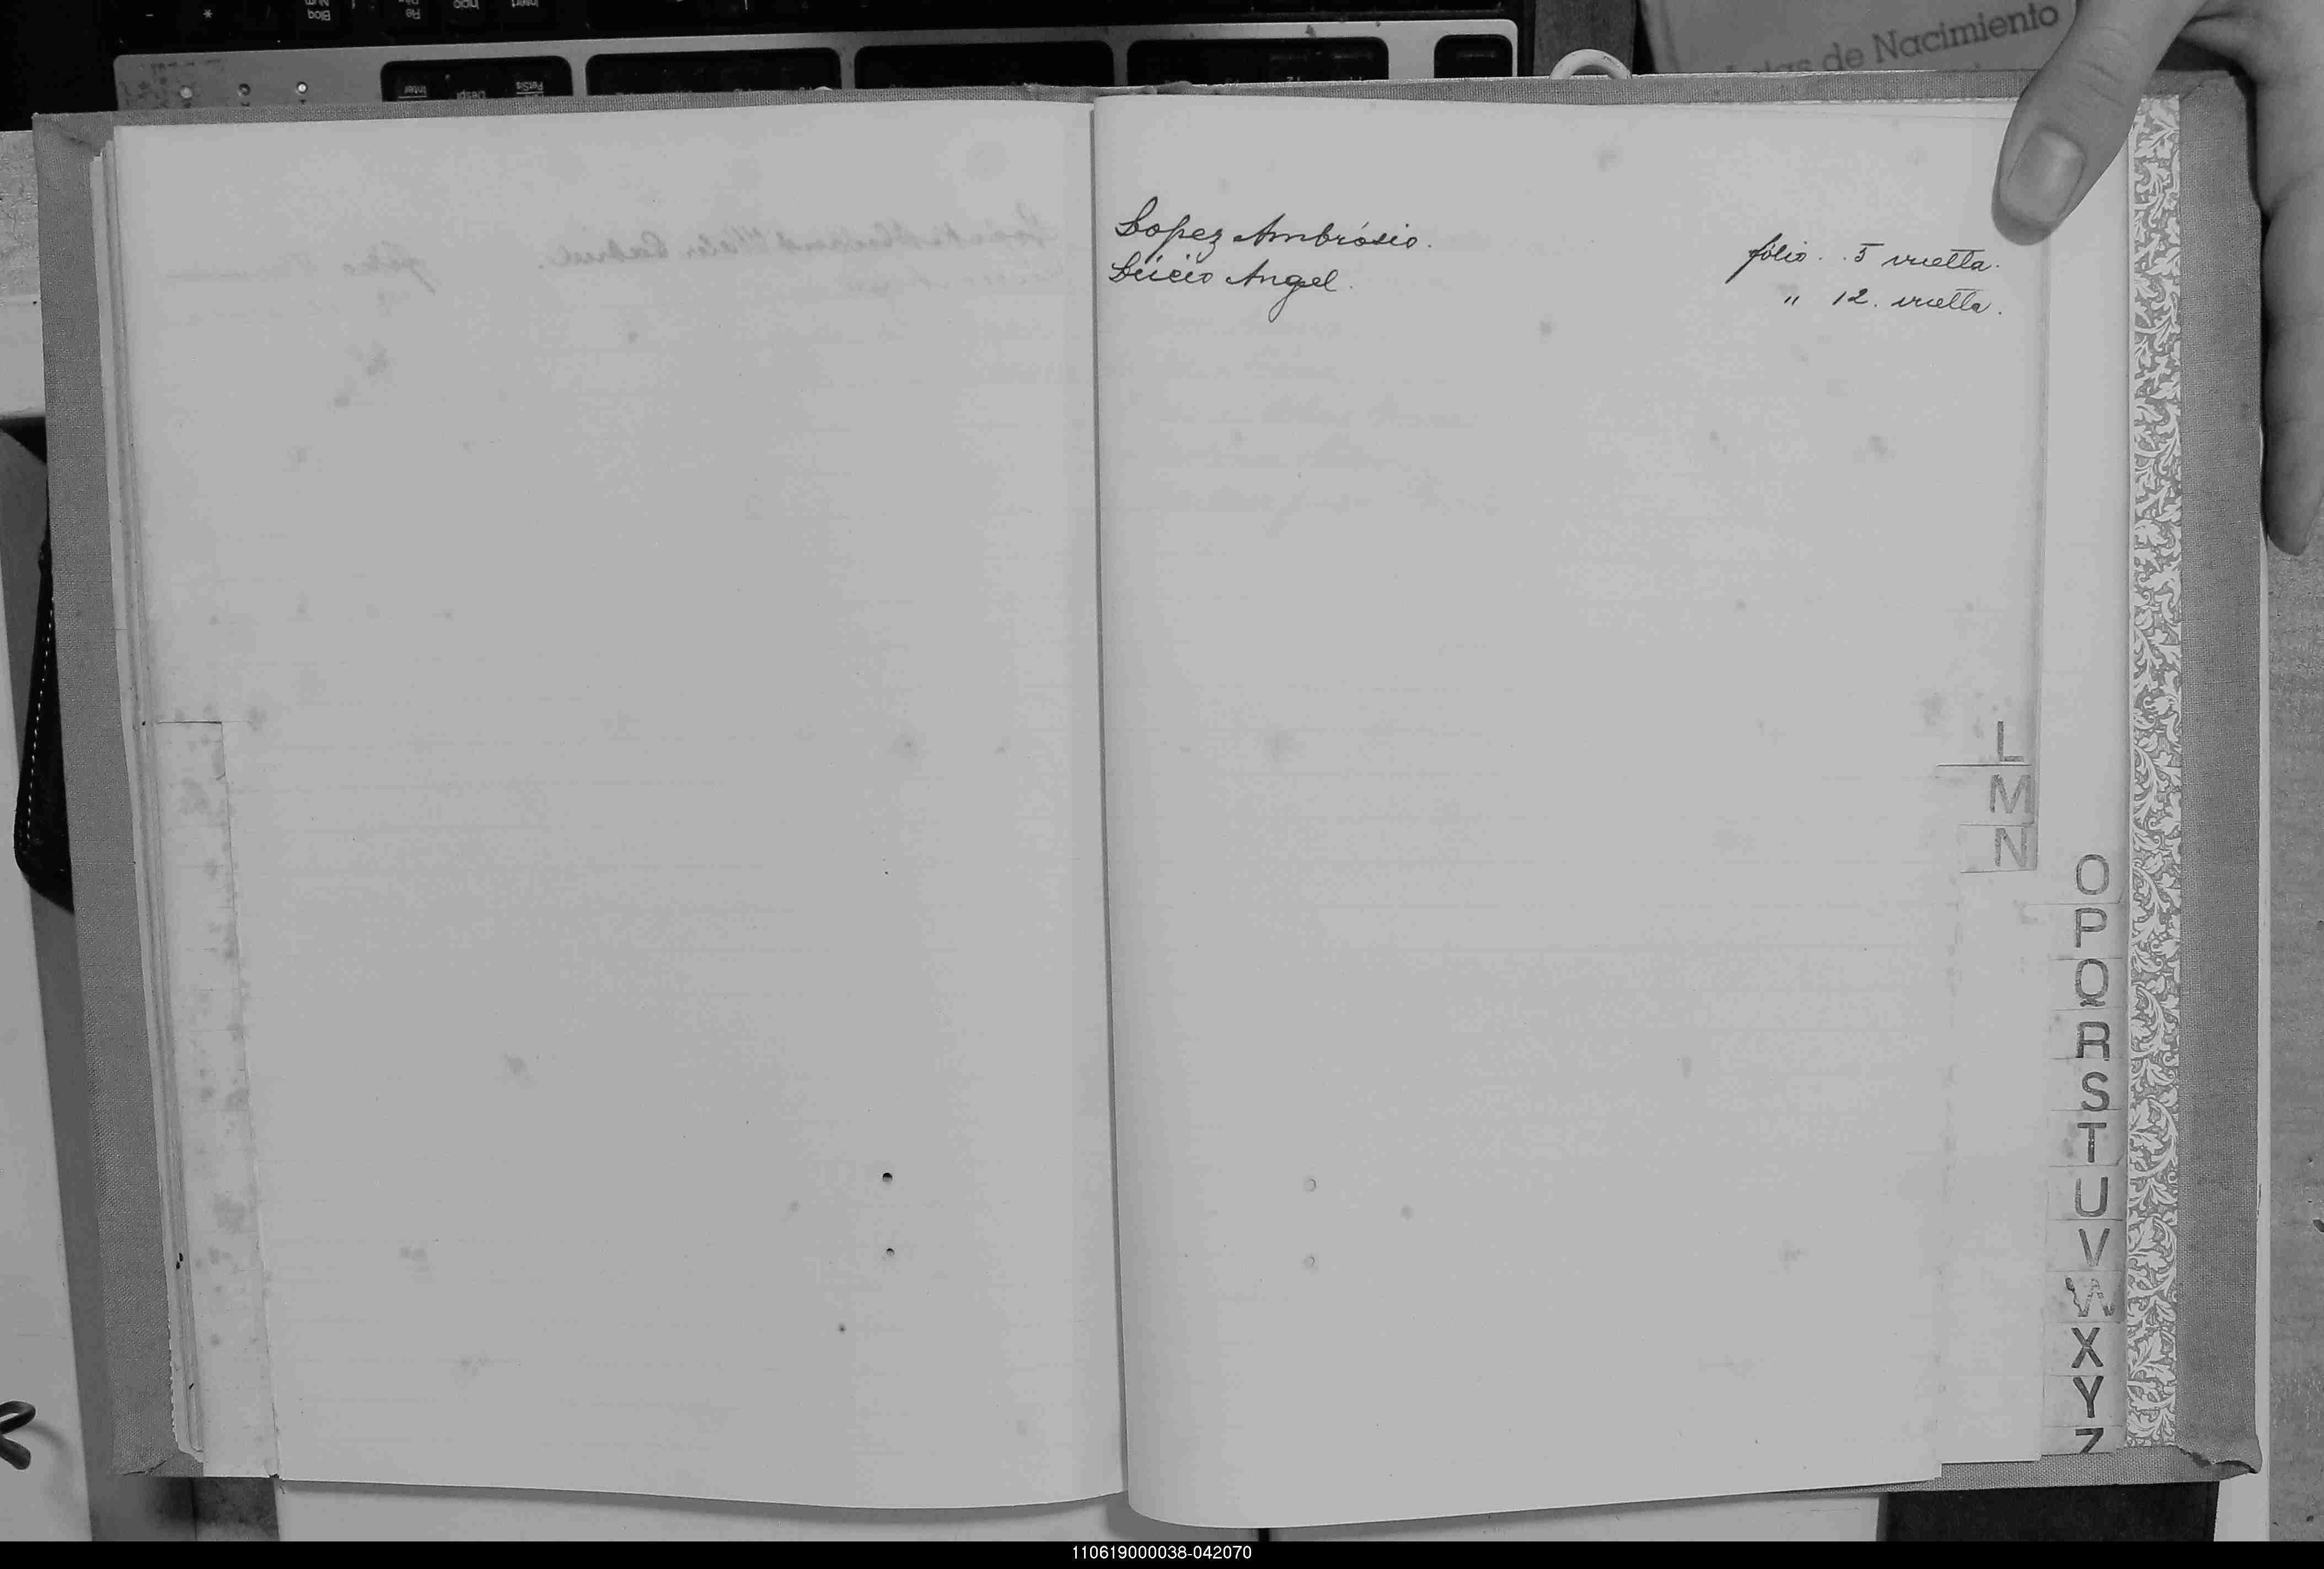 de Nacimiento
Lopez Ambrósio. folio . . 5 vuelta.
Lúcio Angel. " 12. vuelta.
L
M
N
O
P
Q
R
S
T
U
V
W
X
Y
Z
110619000038-042070